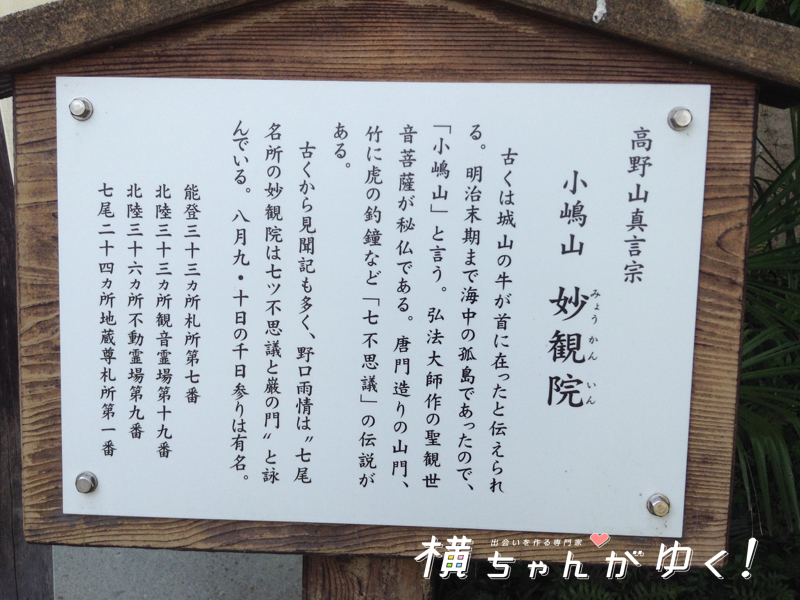 高野山真言宗
小嶋山 妙観院
みょう かん いん
古くは城山の牛が首に在ったと伝えられ
る。明治末期まで海中の孤島であったので、
「小嶋山」と言う。弘法大師作の聖観世
音菩薩が秘仏である。唐門造りの山門、
竹に虎の釣鐘など「七不思議」の伝説が
ある。
古くから見聞記も多く、野口雨情は〝七尾
名所の妙観院は七ツ不思議と巌の門〟と詠
んでいる。八月九・十日の千日参りは有名。
能登三十三カ所札所第七番
北陸三十三カ所観音霊場第十九番
北陸三十六カ所不動霊場第九番
七尾二十四カ所地蔵尊札所第一番
出会いを作る専門家
横ちゃんがゆく!